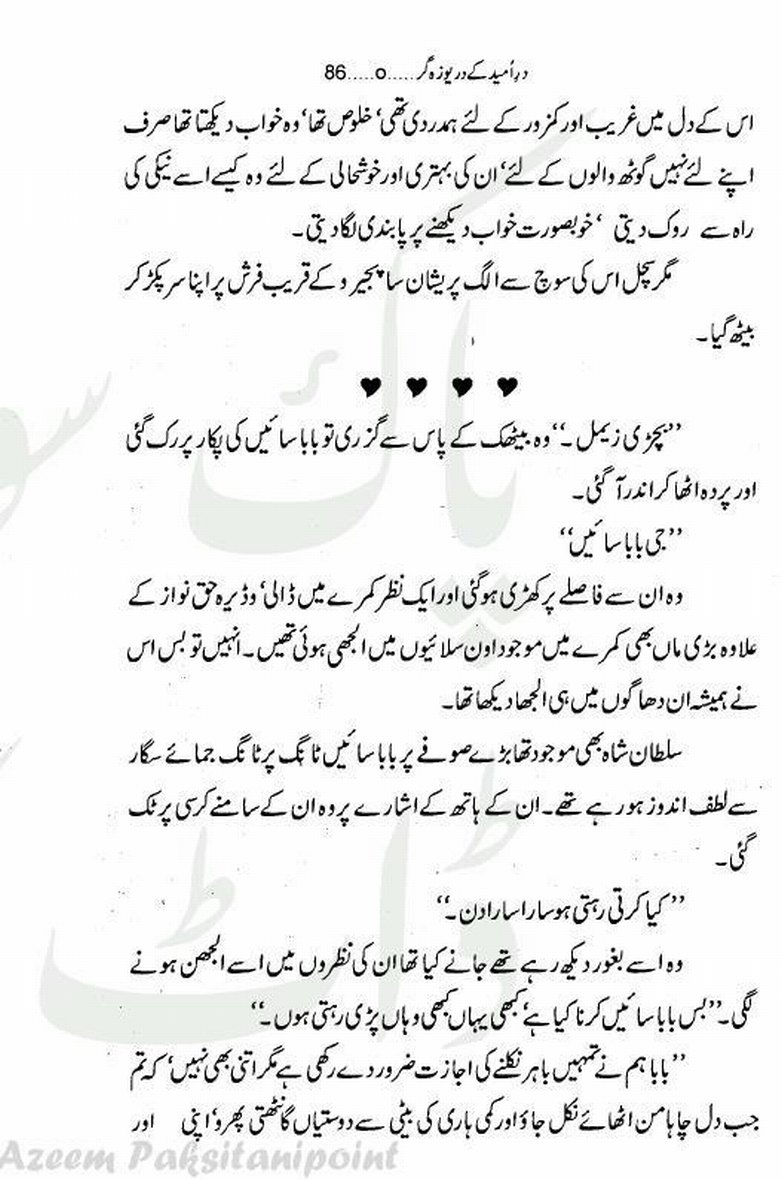 درِ اُمید کے دریوزہ گر.....o.....86
اس کے دل میں غریب اور کمزور کے لئے ہمدردی تھی‘ خلوص تھا‘ وہ خواب دیکھتا تھا صرف
اپنے لئے نہیں گوٹھ والوں کے لئے‘ ان کی بہتری اور خوشحالی کے لئے وہ کیسے اسے نیکی کی
راہ سے روک دیتی ‘ خوبصورت خواب دیکھنے پر پابندی لگا دیتی۔
مگر سچل اس کی سوچ سے الگ پریشان سا پجیرو کے قریب فرش پر اپنا سر پکڑ کر
بیٹھ گیا۔
♥ ♥ ♥ ♥
’’بچڑی زیمل۔‘‘ وہ بیٹھک کے پاس سے گزری تو بابا سائیں کی پکار پر رک گئی
اور پردہ اٹھا کر اندر آ گئی۔
’’جی بابا سائیں‘‘
وہ ان سے فاصلے پر کھڑی ہو گئی اور ایک نظر کمرے میں ڈالی‘ وڈیرہ حق نواز کے
علاوہ بڑی ماں بھی کمرے میں موجود اون سلائیوں میں الجھی ہوئی تھیں۔ انہیں تو بس اس
نے ہمیشہ ان دھاگوں میں ہی الجھا دیکھا تھا۔
سلطان شاہ بھی موجود تھا بڑے صوفے پر بابا سائیں ٹانگ پر ٹانگ جمائے سگار
سے لطف اندوز ہو رہے تھے۔ ان کے ہاتھ کے اشارے پر وہ ان کے سامنے کرسی پر ٹک
گئی۔
’’کیا کرتی رہتی ہو سارا سارا دن۔‘‘
وہ اسے بغور دیکھ رہے تھے جانے کیا تھا ان کی نظروں میں اسے الجھن ہونے
لگی۔ ’’بس بابا سائیں کرنا کیا ہے‘ کبھی یہاں کبھی وہاں پڑی رہتی ہوں۔‘‘
’’بابا ہم نے تمہیں باہر نکلنے کی اجازت ضرور دے رکھی ہے مگر اتنی بھی نہیں‘ کہ تم
جب دل چاہا من اٹھائے نکل جاؤ اور کمی ہاری کی بیٹی سے دوستیاں گانٹھتی پھرو‘ اپنی اور
Azeem Paksitanipoint